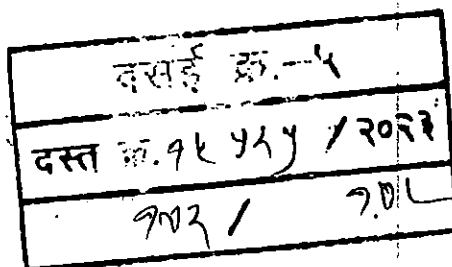 वसई क्र.-५
दस्त क्र. १५५२५ / २०२३
१०२ / १०८